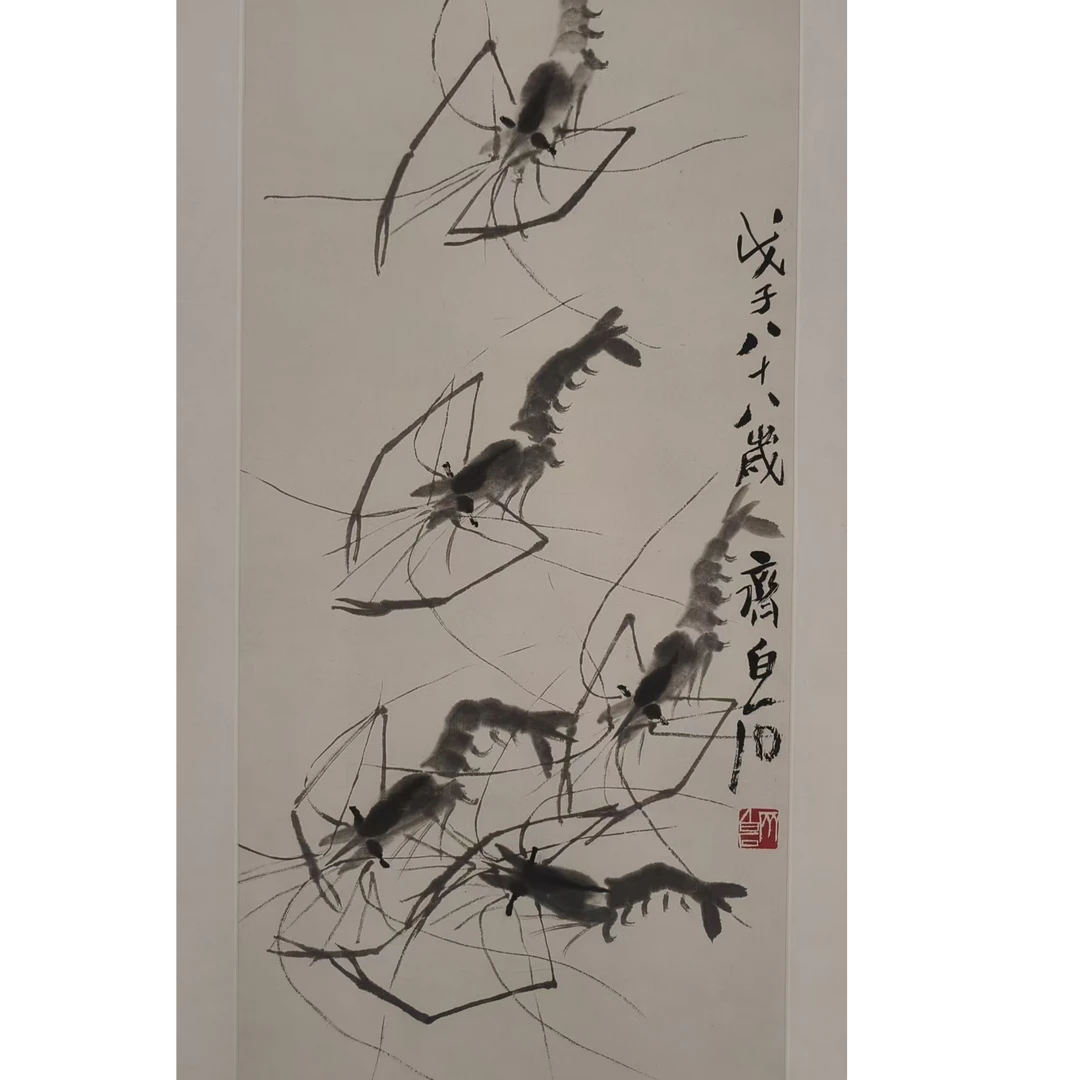 戊子八十八歲齊白石